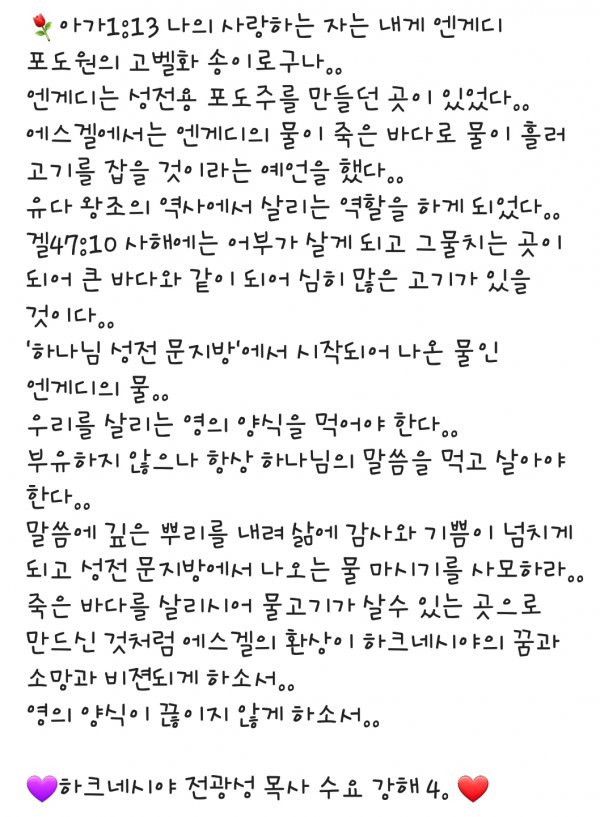 🌹아가1:13 나의 사랑하는 자는 내게 엔게디
포도원의 고벨화 송이로구나。。
엔게디는 성전용 포도주를 만들던 곳이 있었다。。
에스겔에서는 엔게디의 물이 죽은 바다로 물이 흘러
고기를 잡을 것이라는 예언을 했다。。
유다 왕조의 역사에서 살리는 역할을 하게 되었다。。
겔47:10 사해에는 어부가 살게 되고 그물치는 곳이
되어 큰 바다와 같이 되어 심히 많은 고기가 있을
것이다。。
'하나님 성전 문지방'에서 시작되어 나온 물인
엔게디의 물。。
우리를 살리는 영의 양식을 먹어야 한다。。
부유하지 않으나 항상 하나님의 말씀을 먹고 살아야
한다。。
말씀에 깊은 뿌리를 내려 삶에 감사와 기쁨이 넘치게
되고 성전 문지방에서 나오는 물 마시기를 사모하라。。
죽은 바다를 살리시어 물고기가 살수 있는 곳으로
만드신 것처럼 에스겔의 환상이 하크네시야의 꿈과
소망과 비젼되게 하소서。。
영의 양식이 끊이지 않게 하소서。。
💜하크네시야 전광성 목사 수요 강해 4。❤️